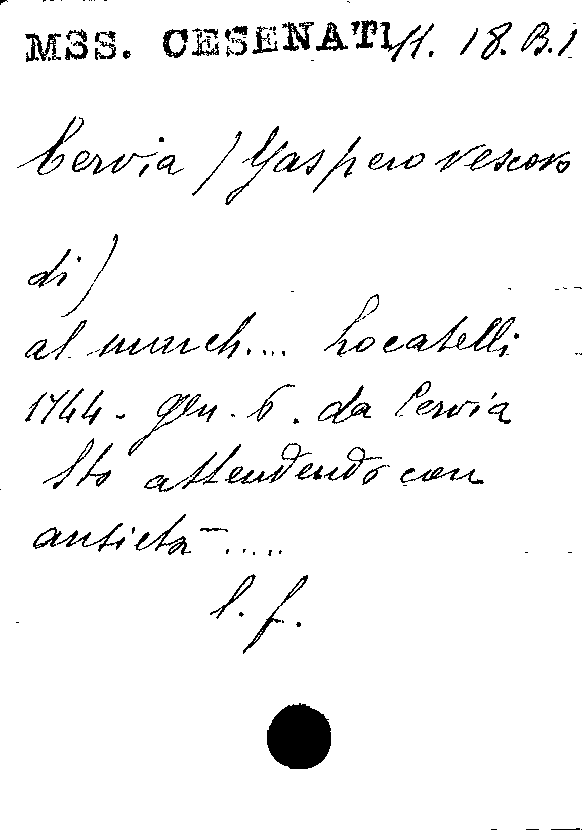 MSS. CESENATI 11. 18. B. 1
Cervia / Gaspero vescovo
di /
al march.... Locatelli
1744 - Gen. 6. da Cervia
Sto attendendo con
antietà .....
l. f.